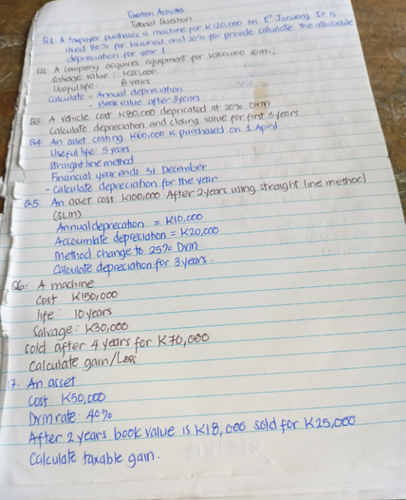 Taxation Activities
Tutorial Question
Q1. A taxpayer purchases a machine for K120,000 on 1st January. It is
used 80% for business and 20% for private calculate the allowable
depreciation for year 1
Q2. A company acquires equipment for K200,000 with,
Salvage value: K20,000
Useful life 8 years
Calculate - Annual depreciation
- Book value after 3 years
Q3. A vehicle cost K80,000 depricated at 20% DVM
Calculate depreciation and closing value for first 3 years
Q4. An asset costing K60,000 is purchased on 1 April
Useful life: 5 years
Straight line method
Financial year ends 31 December
- Calculate depreciation for the year
Q5. An asset cost K100,000 After 2 years using straight line method
(SLM)
Annual deprecation = K10,000
Accoumlate depreciation = K20,000
Method change to 25% DVM
Calculate depreciation for 3 years.
Q6: A machine
Cost: K150,000
life: 10 years
Salvage: K30,000
Sold after 4 years for K70,000
Calculate gain/Loss
7. An asset
Cost: K50,000
DVM rate: 40%
After 2 years book value is K18,000 sold for K25,000
Calculate taxable gain.